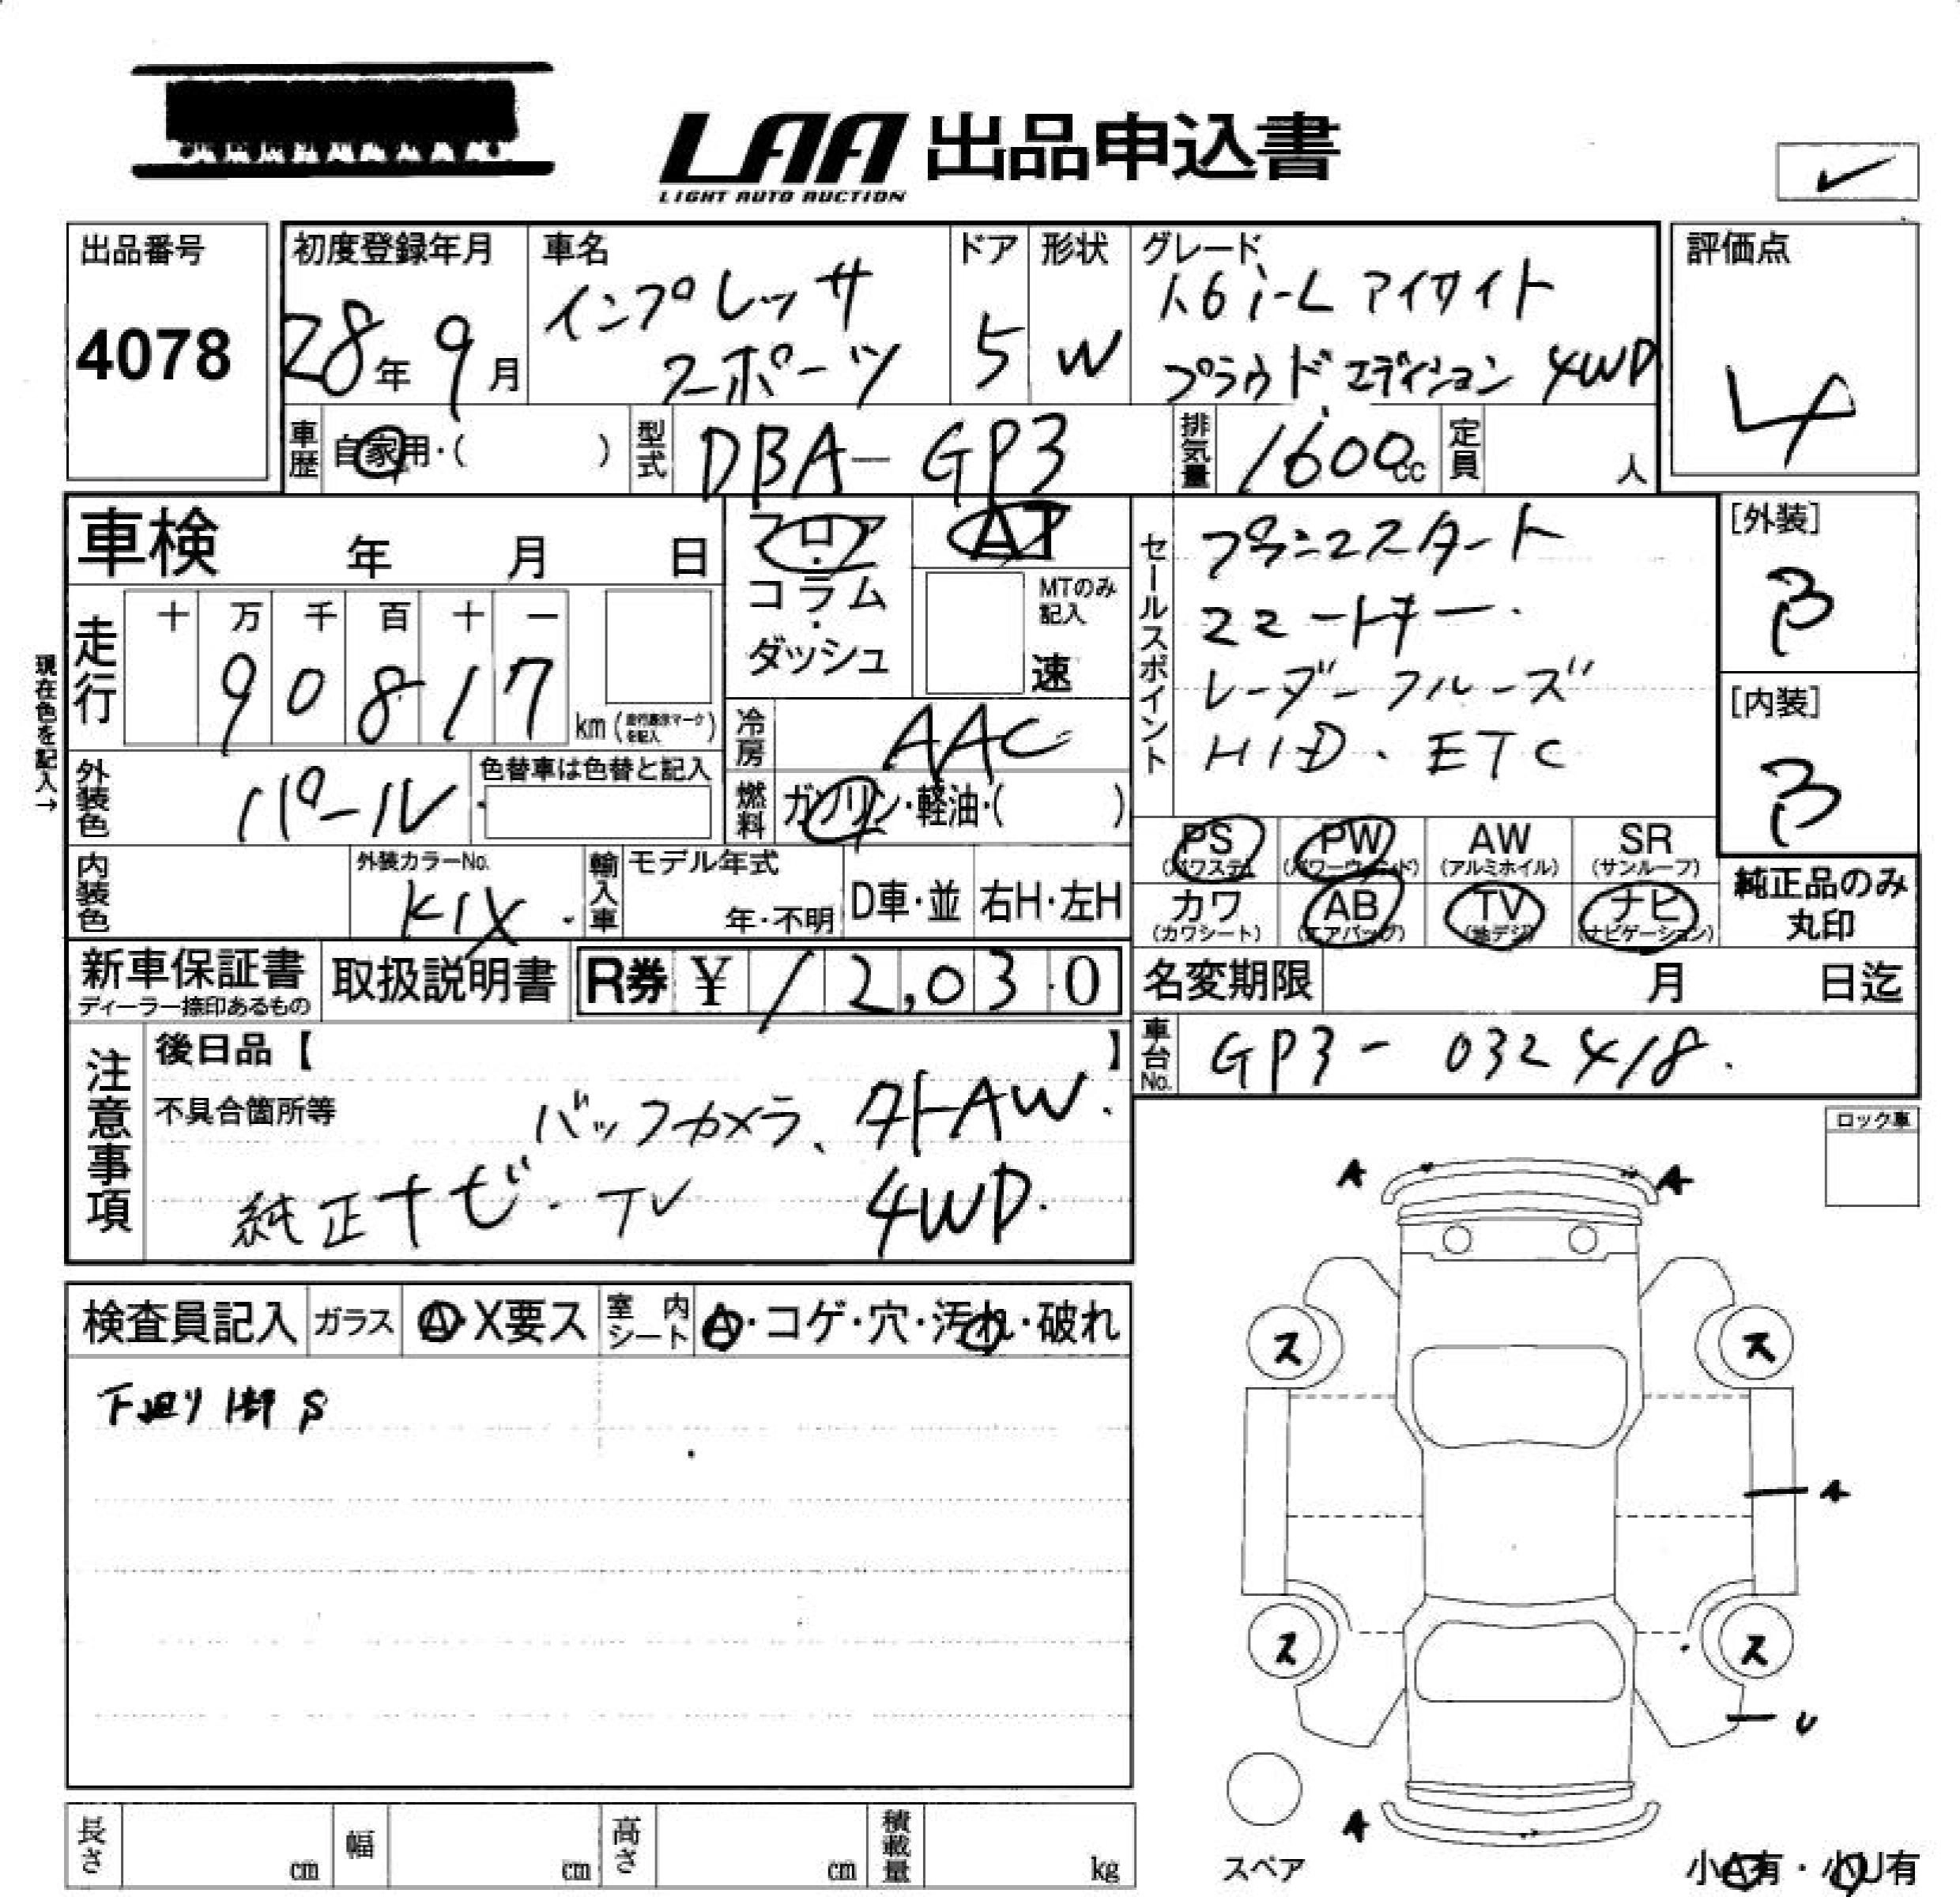 LAA 出品申込書
LIGHT AUTO AUCTION
出品番号
4078
初度登録年月
28年 9月
車名
インプレッサ
スポーツ
ドア
5
形状
W
グレード
1.6 i-L アイサイト
プラウドエディション 4WD
評価点
4
車歴
自家用・( )
型式
DBA-GP3
排気量
1600cc
定員
人
車検 年 月 日
フロア・
コラム・
ダッシュ
AT
MTのみ
記入
速
セールスポイント
プッシュスタート
スマートキー.
レーダークルーズ
HID. ETC
[外装]
B
[内装]
B
現在色を記入→
走行
十 万 千 百 十 一
9 0 8 1 7
km(走行表示マークを記入)
冷房
AAC
外装色
パール
色替車は色替と記入
燃料
ガソリン・軽油・( )
PS
(パワステ)
PW
(パワーウィンド)
AW
(アルミホイル)
SR
(サンルーフ)
カワ
(カワシート)
AB
(エアバッグ)
TV
(地デジ)
ナビ
(ナビゲーション)
純正品のみ
丸印
内装色
外装カラーNo.
K1X.
輸入車
モデル年式
年・不明
D車・並
右H・左H
新車保証書
ディーラー捺印あるもの
取扱説明書
R券 ¥12,030
名変期限 月 日迄
車台No.
GP3-032418.
注意事項
後日品【 】
不具合箇所等
バックカメラ、外AW.
純正ナビ.TV 4WD.
ロック車
A A
検査員記入
ガラス
A・X要ス
室内シート
A・コゲ・穴・汚れ・破れ
下廻り 錆 S
ス ス
A
ス ス
U
A
スペア
小A有・小U有
長さ
cm
幅
cm
高さ
cm
積載量
kg